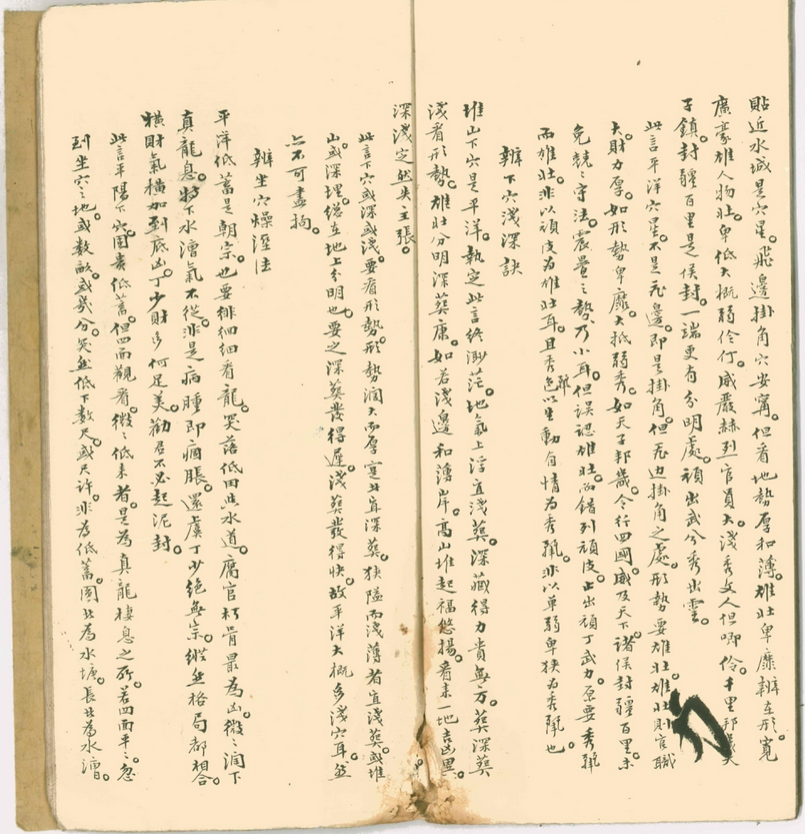 貼近水城是穴星。飛邊掛角穴安甯。但看地勢厚和薄。雄壯卑靡辨在形。寬
廣豪雄人物壯。卑低大概弱伶仃。威嚴赫烈官員大。淺秀文人但唧伶。千里邦畿天
子鎮。封疆百里是侯封。一端更有分明處。頑出武兮秀出雲。
此言平洋穴星。不是飛邊。即是掛角。但飛边掛角之處。形勢要雄壯。雄壯則官職
大。財力厚。如形勢卑靡。大抵弱秀。如天子邦畿。令行四國。威及天下。諸侯封疆百里。未
免兢兢守法。震疊之勢。乃小耳。但誤認雄壯。而錯到頑皮。止出頑丁武力。原要秀
而雄壯。非以頑皮為雄壯耳。且秀以生動有情為秀。非以單弱卑狹為秀也。
辨下穴淺深訣
堆山下穴是平洋。執定此言終渺茫。地氣上浮宜淺葬。深藏得力貴無方。葬深葬
淺看形勢。雄壯分明深葬康。如若淺邊和薄岸。高山堆起福悠揚。看來一地吉凶異。
深淺定然失主張。
此言下穴或深或淺。要看形勢。形勢濶大而厚寔者宜深葬。狹隘而淺薄者宜淺葬。或堆
山或深埋。總在地上分明也。要之深葬發得遲。淺葬發得快。故平洋大概多淺穴耳。然
亦不可盡拘。
辨坐穴燥溼法
平洋低蓄是朝宗。也要徘徊細看龍。突落低田與水道。腐官朽骨最為凶。微微潤下
真龍息。特下水漕氣不從。非是病腫即痼脹。還虞丁少絕無宗。縱然格局都相合。
橫財氣橫加到底凶。丁少財多何足美。勸君不必起泥封。
此言平陽下穴。固貴低蓄。但四面觀看。微微低來者。是為真龍棲息之所。若四面平平。忽
到坐穴之地。或數畝或幾分。突然低下數尺。或尺許。非為低蓄。圓者為水塘。長者為水漕。